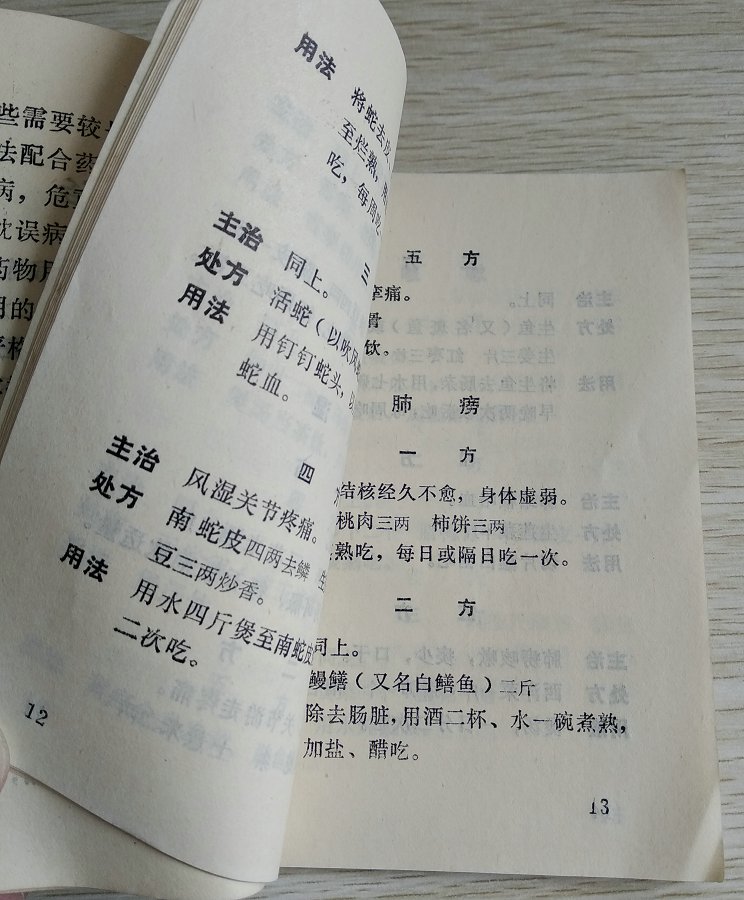 些需要较
法配合药
病，危
误病
药物
用的
用法
将蛇去皮
至烂熟，
吃，每周吃
三
主治 同上。
处方 活蛇（以吹风
用法 用钉钉蛇头，
蛇血。
四
主治 风湿关节疼痛。
处方 南蛇皮四两去鳞 生
豆三两炒香。
用法 用水四斤煲至南蛇皮
二次吃。
12
五 方
痛。
骨
饮。
肺 痨
一 方
结核经久不愈，身体虚弱。
桃肉三两 柿饼三两
熟吃，每日或隔日吃一次。
二 方
同上。
鳗鳝（又名白鳝鱼）二斤
除去肠脏，用酒二杯、水一碗煮熟，
加盐、醋吃。
13